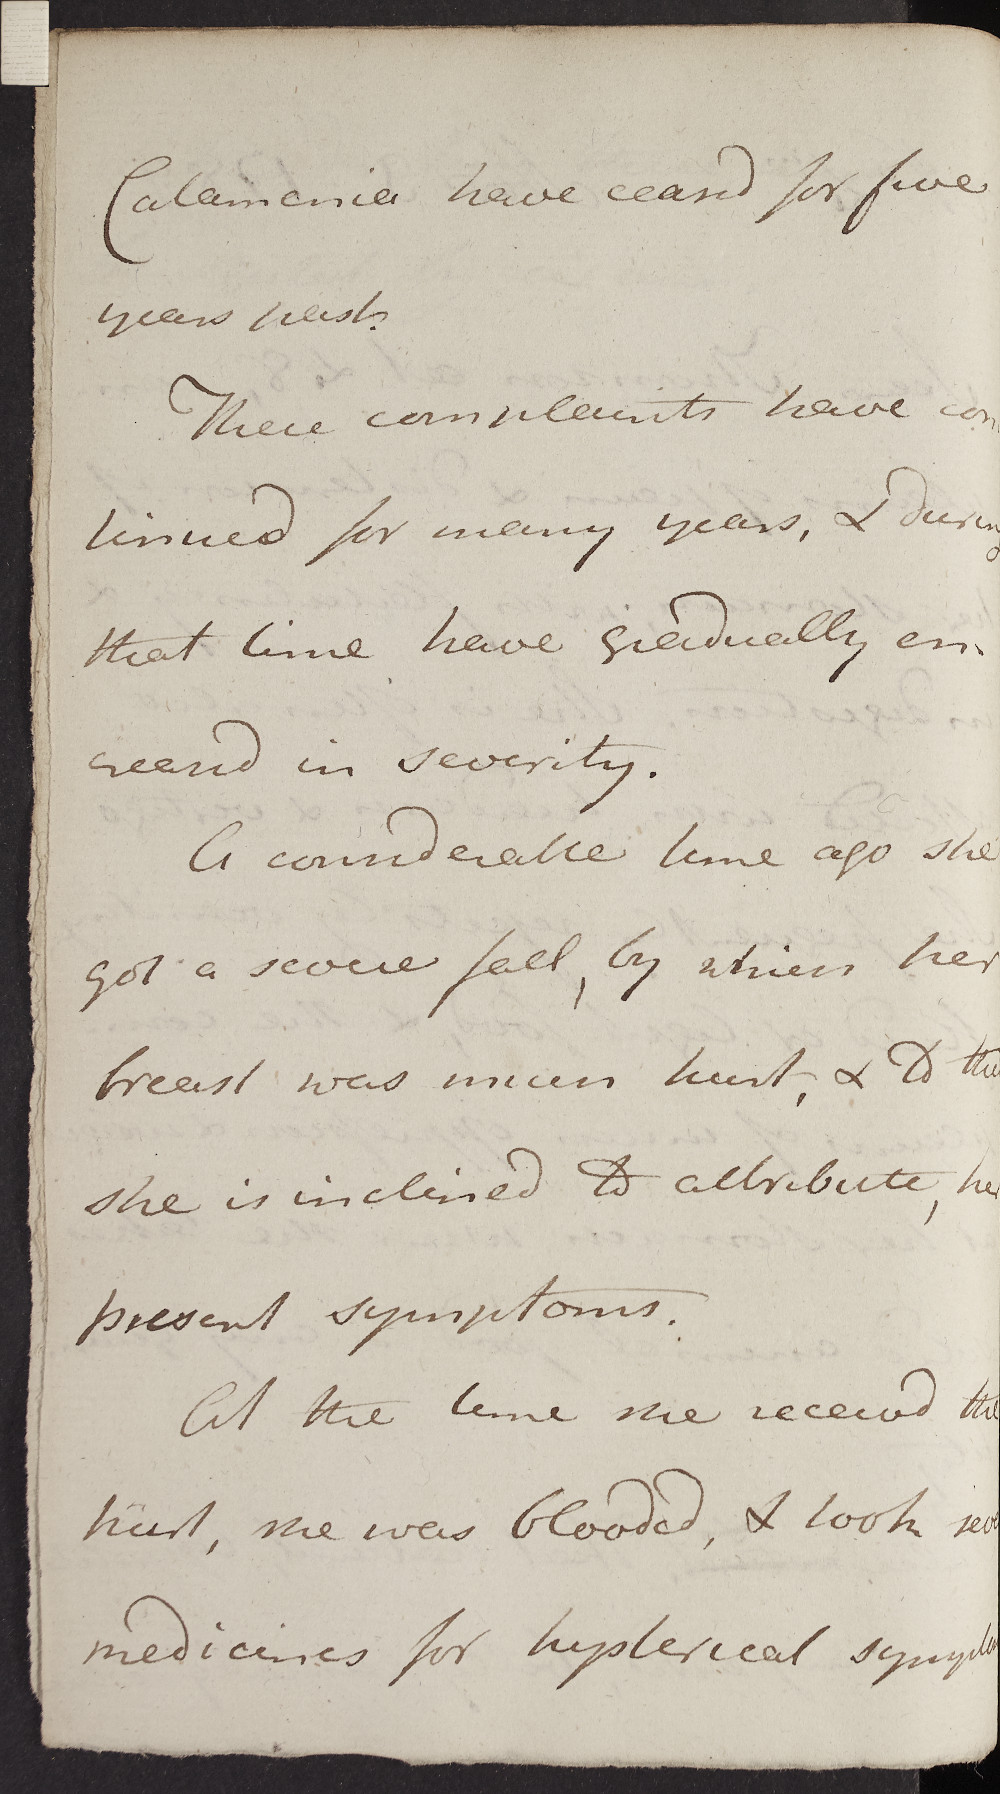 Catamenia have ceasd for five
years past.
These complaints have con
tinued for many years, & during
that time have gradually en
creasd in severity.
A considerable time ago she
got a severe fall, by which her
breast was much hurt, & to this
she is inclined to attribute, her
present symptoms.
At the time she receivd the
hurt, she was blooded, & took
medicines for hysterical